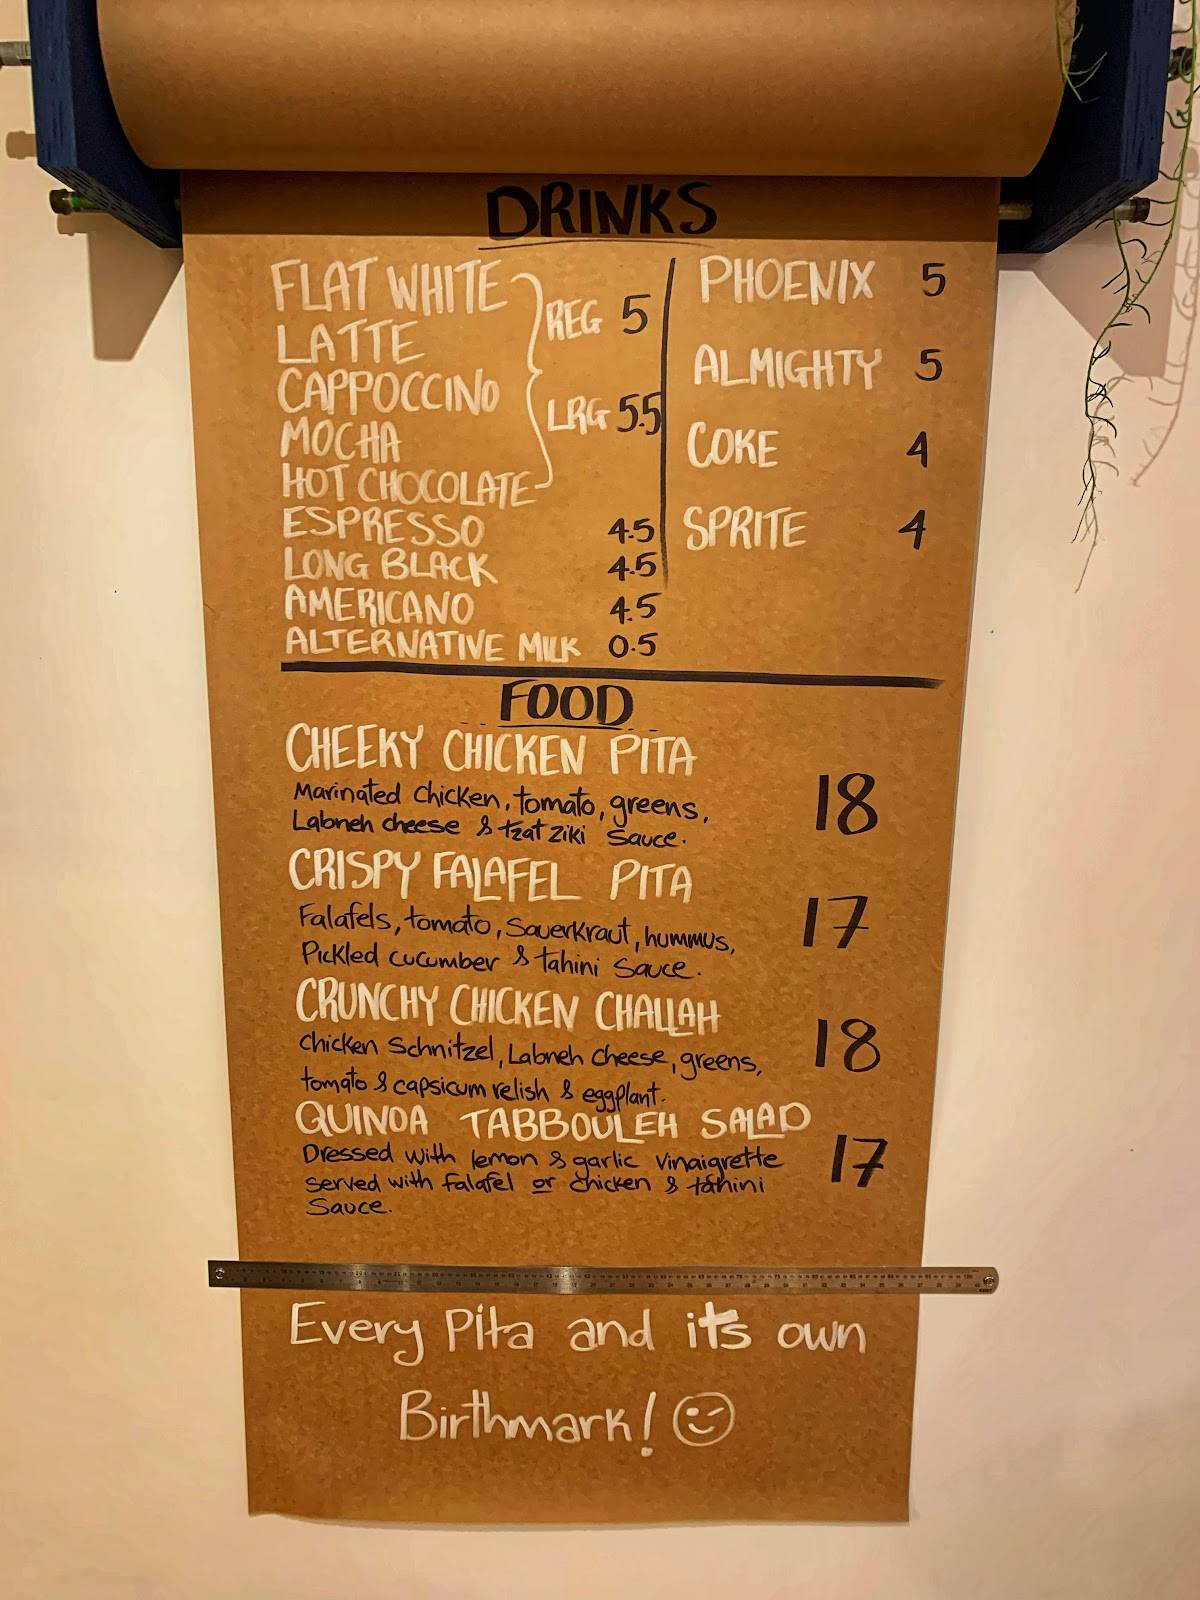 DRINKS
FLAT WHITE
LATTE
CAPPOCCINO
MOCHA
HOT CHOCOLATE
REG 5
LRG 5.5
ESPRESSO 4.5
LONG BLACK 4.5
AMERICANO 4.5
ALTERNATIVE MILK 0.5
PHOENIX 5
ALMIGHTY 5
COKE 4
SPRITE 4
FOOD
CHEEKY CHICKEN PITA
Marinated chicken, tomato, greens,
Labneh cheese & tzatziki sauce.
18
CRISPY FALAFEL PITA
Falafels, tomato, Sauerkraut, hummus,
Pickled cucumber & tahini sauce.
17
CRUNCHY CHICKEN CHALLAH
Chicken Schnitzel, Labneh cheese, greens,
tomato & capsicum relish & eggplant.
18
QUINOA TABBOULEH SALAD
Dressed with lemon & garlic vinaigrette
served with falafel or chicken & tahini
sauce.
17
Every Pita and its own
Birthmark!